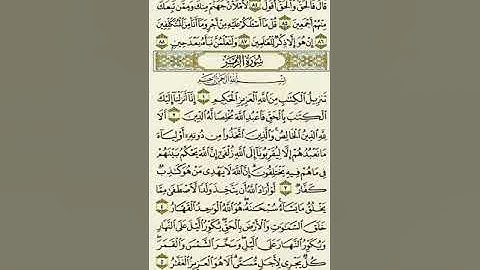 قَالَ فَالْحَقُّ وَالْحَقَّ أَقُولُ ٨٤ لَأَمْلَأَنَّ جَهَنَّمَ مِنكَ وَمِمَّن تَبِعَكَ
مِنْهُمْ أَجْمَعِينَ ٨٥ قُلْ مَا أَسْـَٔلُكُمْ عَلَيْهِ مِنْ أَجْرٍ وَمَا أَنَا۠ مِنَ الْمُتَكَلِّفِينَ
٨٦ إِنْ هُوَ إِلَّا ذِكْرٌ لِّلْعَالَمِينَ ٨٧ وَلَتَعْلَمُنَّ نَبَأَهُ بَعْدَ حِينٍ ٨٨
سُورَةُ الزُّمَرِ
بِسْمِ اللَّهِ الرَّحْمَٰنِ الرَّحِيمِ
تَنزِيلُ الْكِتَابِ مِنَ اللَّهِ الْعَزِيزِ الْحَكِيمِ ١ إِنَّا أَنزَلْنَا إِلَيْكَ
الْكِتَابَ بِالْحَقِّ فَاعْبُدِ اللَّهَ مُخْلِصًا لَّهُ الدِّينَ ٢ أَلَا
لِلَّهِ الدِّينُ الْخَالِصُ وَالَّذِينَ اتَّخَذُوا مِن دُونِهِ أَوْلِيَاءَ
مَا نَعْبُدُهُمْ إِلَّا لِيُقَرِّبُونَا إِلَى اللَّهِ زُلْفَىٰ إِنَّ اللَّهَ يَحْكُمُ بَيْنَهُمْ
فِي مَا هُمْ فِيهِ يَخْتَلِفُونَ إِنَّ اللَّهَ لَا يَهْدِي مَنْ هُوَ كَاذِبٌ
كَفَّارٌ ٣ لَّوْ أَرَادَ اللَّهُ أَن يَتَّخِذَ وَلَدًا لَّاصْطَفَىٰ مِمَّا
يَخْلُقُ مَا يَشَاءُ سُبْحَانَهُ هُوَ اللَّهُ الْوَاحِدُ الْقَهَّارُ ٤
خَلَقَ السَّمَاوَاتِ وَالْأَرْضَ بِالْحَقِّ يُكَوِّرُ اللَّيْلَ عَلَى النَّهَارِ
وَيُكَوِّرُ النَّهَارَ عَلَى اللَّيْلِ وَسَخَّرَ الشَّمْسَ وَالْقَمَرَ
كُلٌّ يَجْرِي لِأَجَلٍ مُّسَمًّى أَلَا هُوَ الْعَزِيزُ الْغَفَّارُ ٥